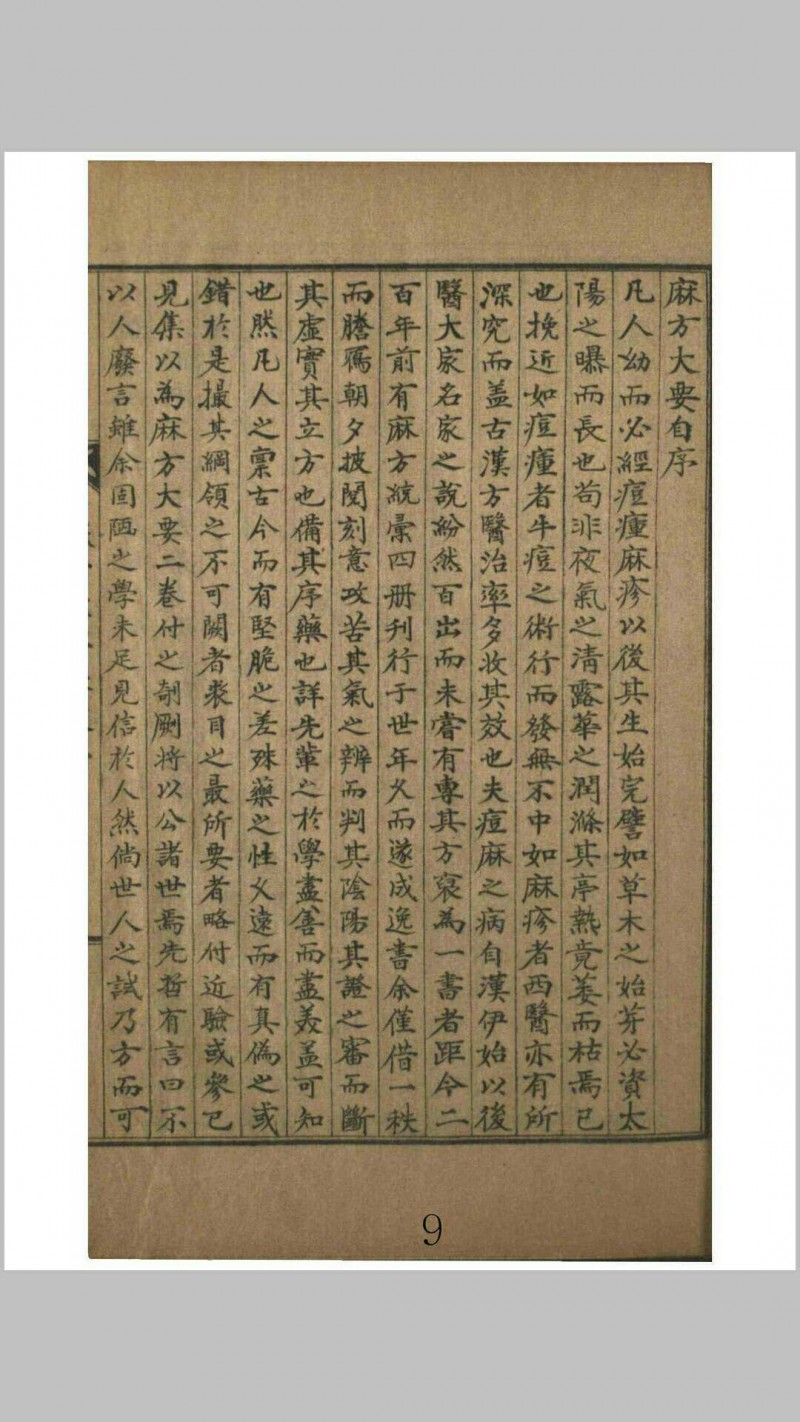 麻方大要自序
凡人幼而必經痘瘇麻疹以後其生始完譬如草木之始芽必資太
陽之曝而長也苟非夜氣之清露華之潤滌其亭熟竟萎而枯焉已
也挽近如痘瘇者牛痘之術行而發無不中如麻疹者西醫亦有所
深究而盖古漢方醫治率多收其效也夫痘麻之病自漢伊始以後
醫大家名家之說紛然百出而未嘗有專其方裒為一書者距今二
百年前有麻方統彙四册刊行于世年久而遂成逸書余僅借一秩
而謄寫朝夕披閱刻意攻苦其氣之辨而判其陰陽其證之審而斷
其虛實其立方也備其序藥也詳先輩之於學盡善而盡美盖可知
也然凡人之稟古今而有堅脆之差殊藥之性久遠而有真偽之或
錯於是撮其綱領之不可闕者裘目之最所要者略付近驗或參已
見集以為麻方大要二卷付之剞劂將以公諸世焉先哲有言曰不
以人廢言雖余固陋之學未足見信於人然倘世人之試乃方而可
9